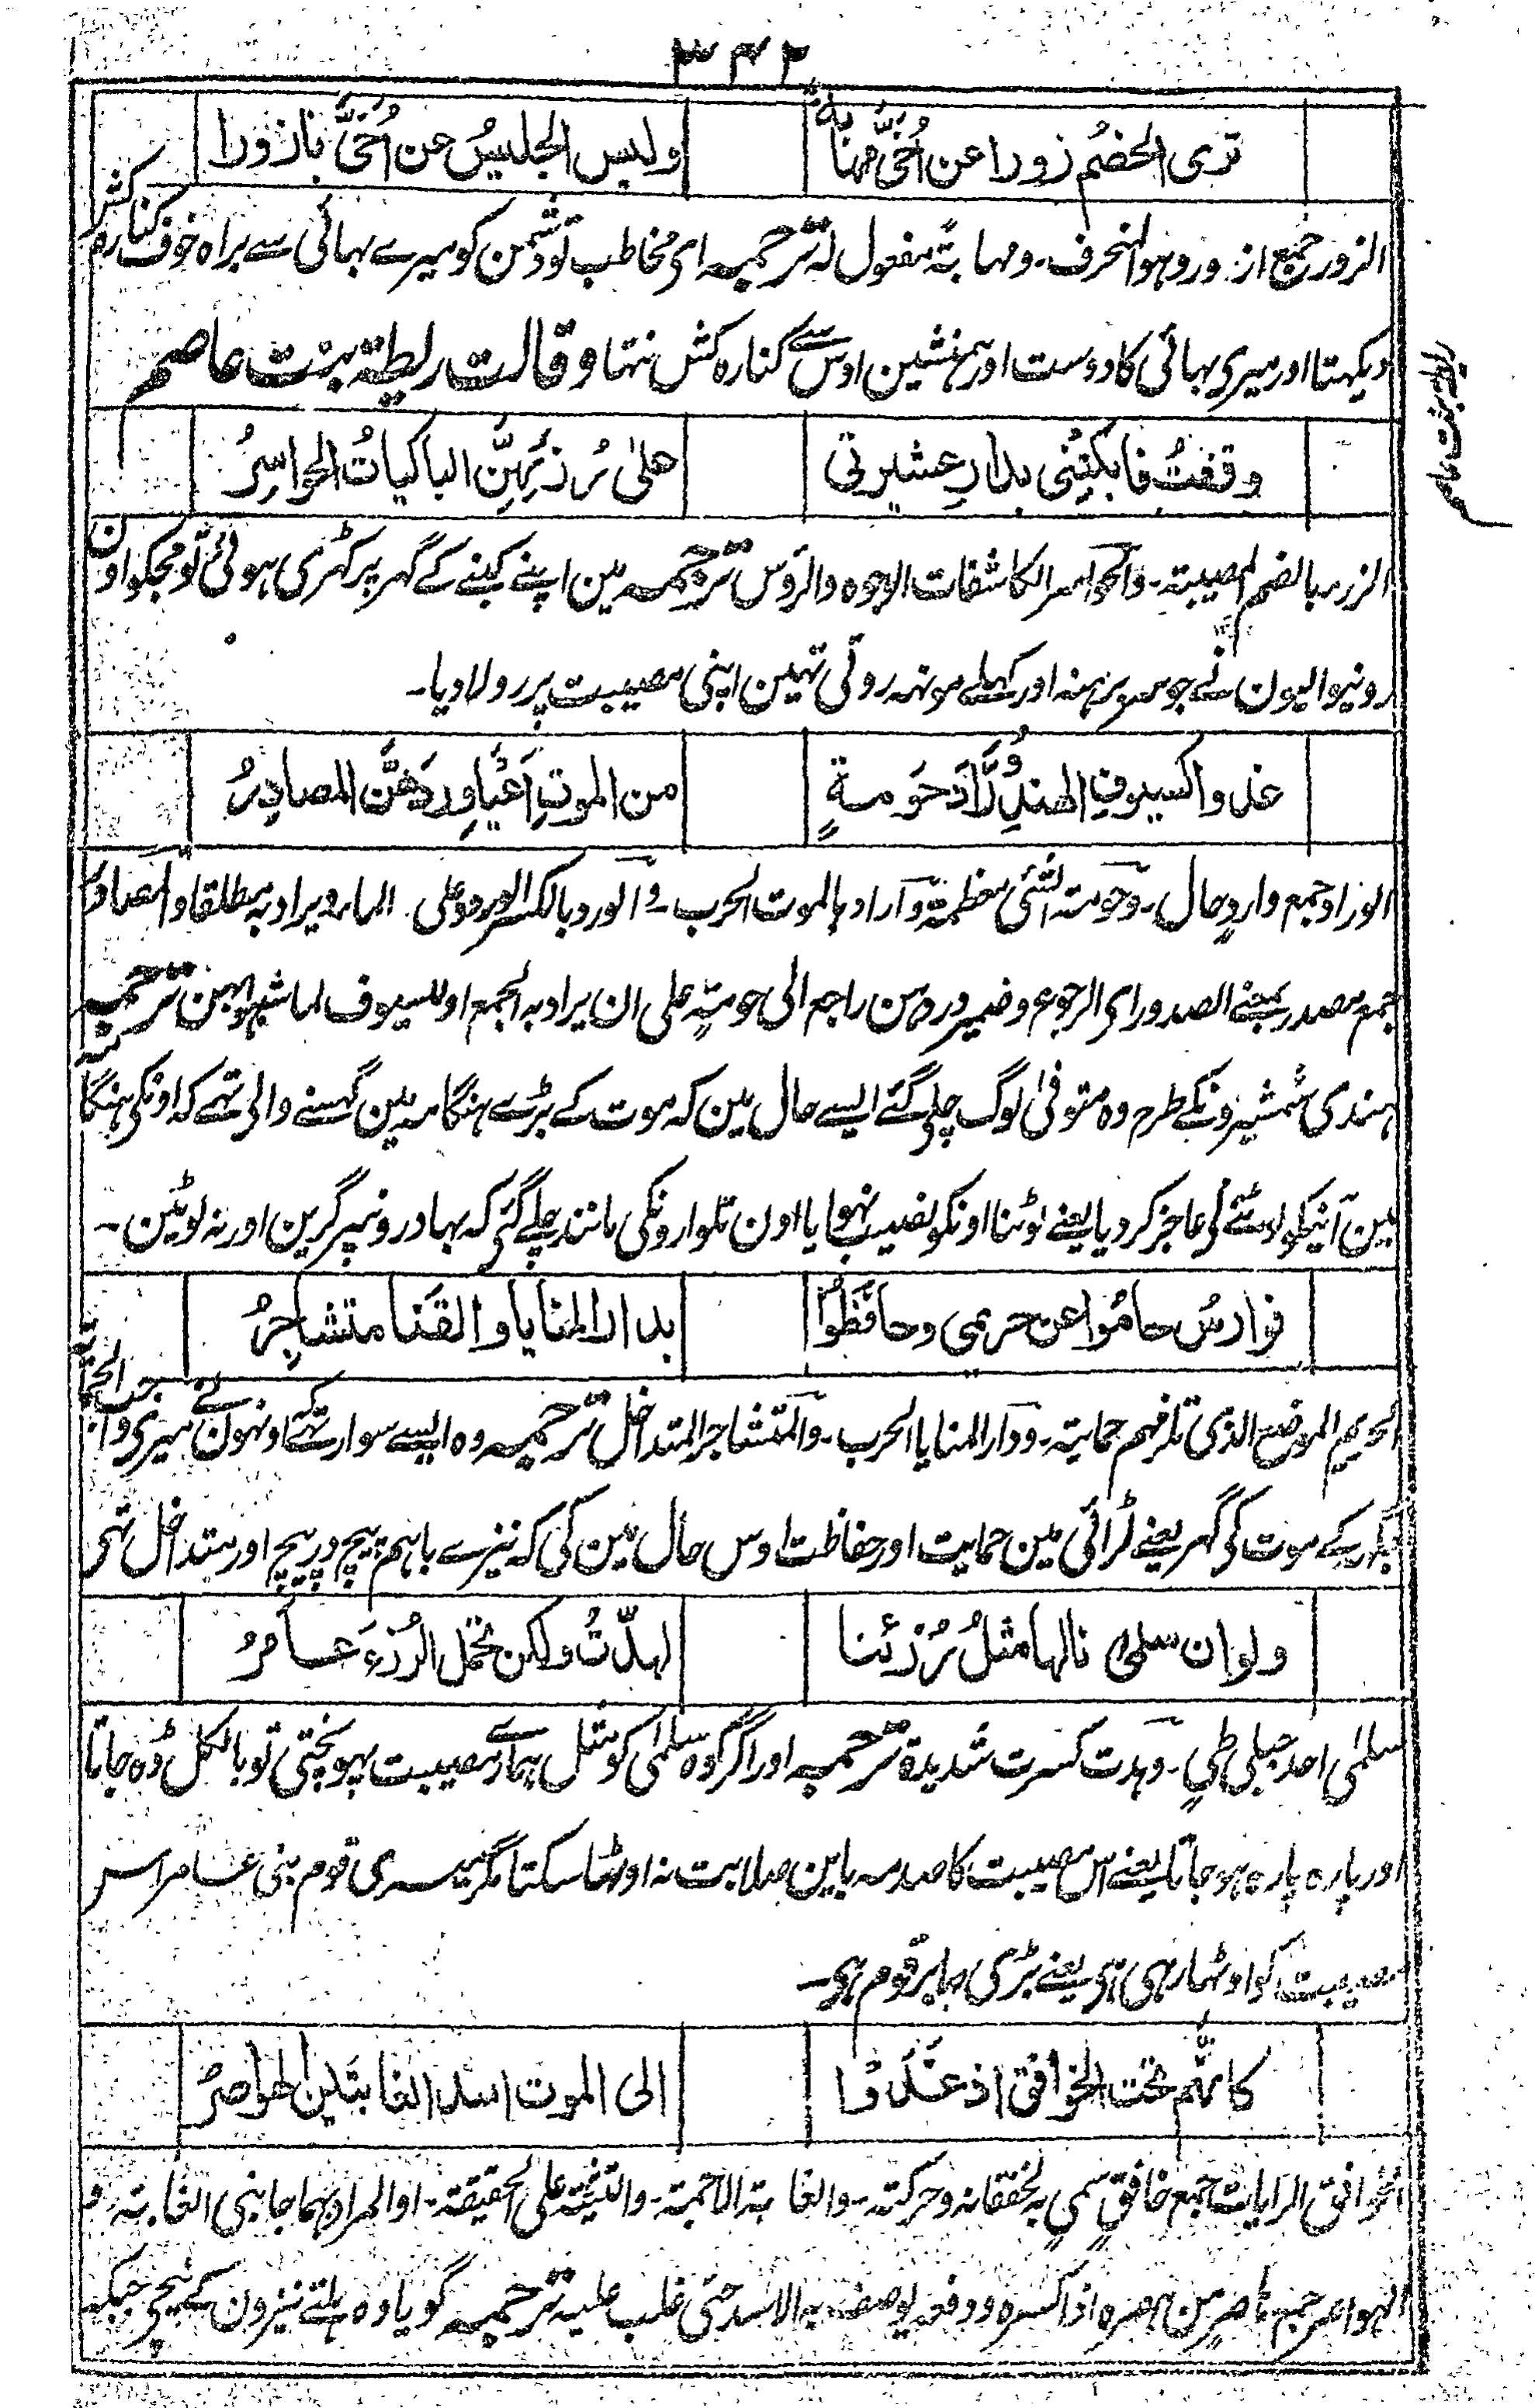 ۳۴۲
ترى الخصم زورا عن أخى مهابة وليس الجليس عن أخىَّ بازورا
الزور جمع ازور وہو المنحرف۔ ومہابۃ مفعول لہ ترجمہ ای مخاطب تو دشمن کو میرے بہائی سے براہ خوف کنارہ کش
دیکہتا اور میری بہائی کا دوست اور ہمنشین اوس سے کنارہ کش نتہا وقالت ریطۃ بنت عاصم
وقفتُ فابكتنى بدارِ عشيرتى على رُزئهنّ الباكياتُ الحواسِرُ
الرزء بالضم المصیبۃ۔ والحواسر الکاشفات الوجوہ والرؤس ترجمہ مین اپنے کنبے کے گہر پر کہڑی ہوئی تو مجکو اون
رونیوالیون نے جو سر برہنہ اور کہلے مونہہ روتی تہین اپنی مصیبت پر رولا دیا۔
غدوا كسيوفِ الهندِ وُرَّادَ حَومةٍ من الموتِ أعيا وِردَهنَّ المصادِرُ
الوراد جمع وارد حال۔ وحومۃ الشئی معظمۃ وأراد بالموت الحرب۔ والورد بالکسر الورود علی الماء ویراد بہ مطلقا والمصادر
جمع مصدر بمعنے الصدور ای الرجوع وضمیر وردہن راجع الی حومۃ علی ان یراد بہ الجمع او للسیوف لما شبہوا بہن ترجمہ
ہندی شمشیرونکے طرح وہ متوفیٰ لوگ چلے گئے ایسے حال مین کہ موت کے بڑے ہنگامہ مین گہسنے والی تہے کہ اونکی ہنگامہ
مین آنیکو لوٹنے نے عاجز کر دیا یعنے لوٹنا اونکو نصیب نہوا یا اون تلوارونکی مانند چلے گئے کہ بہادرونپر گرین اور نہ لوٹین۔
فوارسُ حامُوا عن حريمى وحافَظُوا بدار المنايا والقَنا متشاجِرُ
الحریم الموضع الذی تلزمہم حمایتہ۔ ودار المنایا الحرب۔ والمتشاجر المتداخل ترجمہ وہ ایسے سوار تہے کہ اونہون نے میری واجب الحمایہ
جگہ کے موت کی گہر یعنے لڑائی مین حمایت اور حفاظت اوس حال مین کی کہ نیزے باہم پیچ در پیچ اور متداخل تہی
ولو ان سلمى نالها مثلُ رُزئنا لهدّتْ ولكن تحمل الرُزءَ عامرُ
سلمیٰ احد جبلی طی۔ وہدت کسرت شدیدۃ ترجمہ اور اگر کوہ سلمیٰ کو مثل ہمارے مصیبت پہونچتی تو بالکل ڈہ جاتا
اور پارہ پارہ ہو جاتا یعنے اس مصیبت کا صدمہ باین صلابت نہ اوٹہا سکتا مگر میری قوم بنی عامر اس
مصیبت کو اوٹہا رہی ہی یعنے بڑی صابر قوم ہی۔
كانَّهم تحت الخوافق اذ غَدَوا الى الموت اسد الغابتين الهواصرُ
الخوافق الرایات جمع خافق سمی بہ لخفقانہ وحرکتہ۔ والغابۃ الاجمۃ۔ والتثنیۃ علی الحقیقۃ۔ او المراد بہما جانبی الغابۃ۔ و
الہواصر جمع ہاصر من ہصرہ اذا کسرہ ودفعہ یوصف بہ الاسد حتی غلب علیہ ترجمہ گویا وہ ہلتے نیزون کے نیچی جبکہ